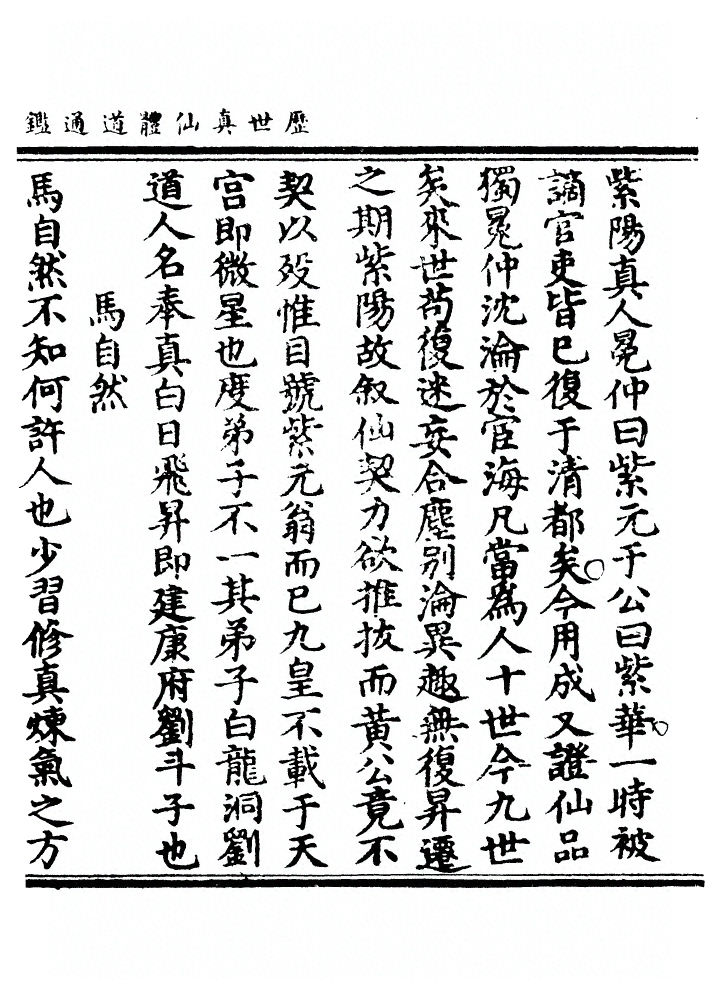 歷世真仙體道通鑑
紫陽真人冕仲曰紫元于公曰紫華一時被
謫官吏皆已復于清都矣今用成又證仙品
獨冕仲沈淪於宦海凡當爲人十世今九世
矣來世苟復迷妄合塵别淪異趣無復昇遷
之期紫陽故叙仙契力欲推拔而黄公竟不
契以歿惟自號紫元翁而已九皇不載于天
宫即微星也度弟子不一其弟子白龍洞劉
道人名奉真白日飛昇即建康府劉斗子也
馬自然
馬自然不知何許人也少習修真煉氣之方